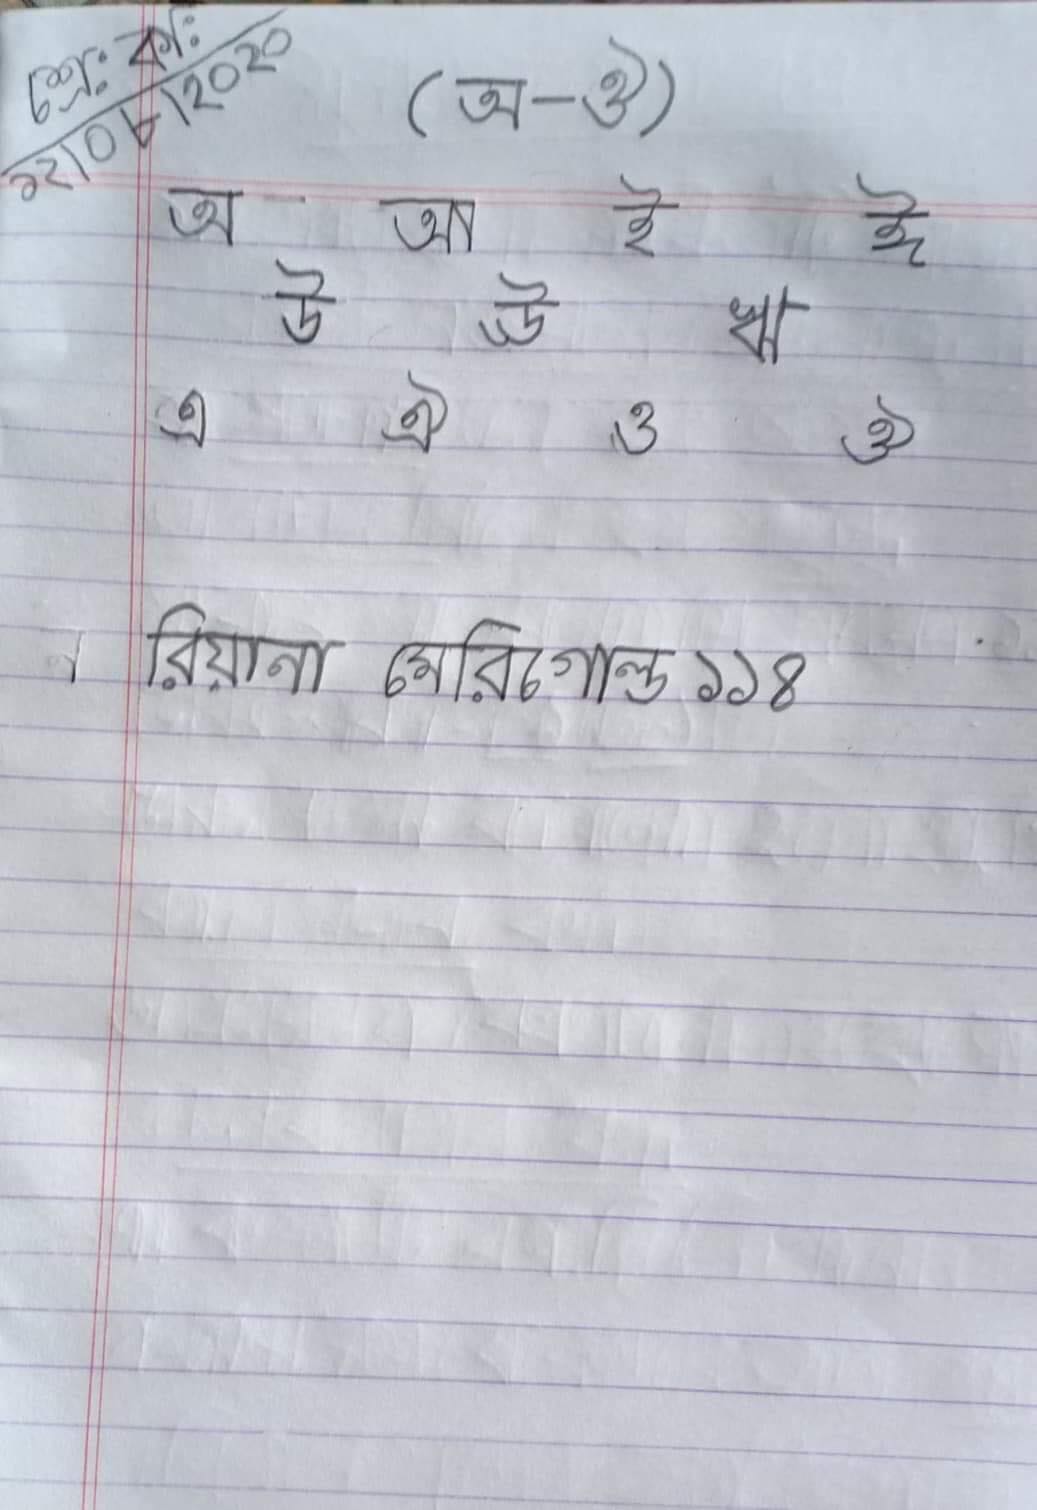 শ্রে: কা:
১২/০৮/2020
(অ-ঔ)
অ আ ই ঈ
উ ঊ ঋ
এ ঐ ও ঔ
রিয়ানা মেরিগোল্ড ১১৪